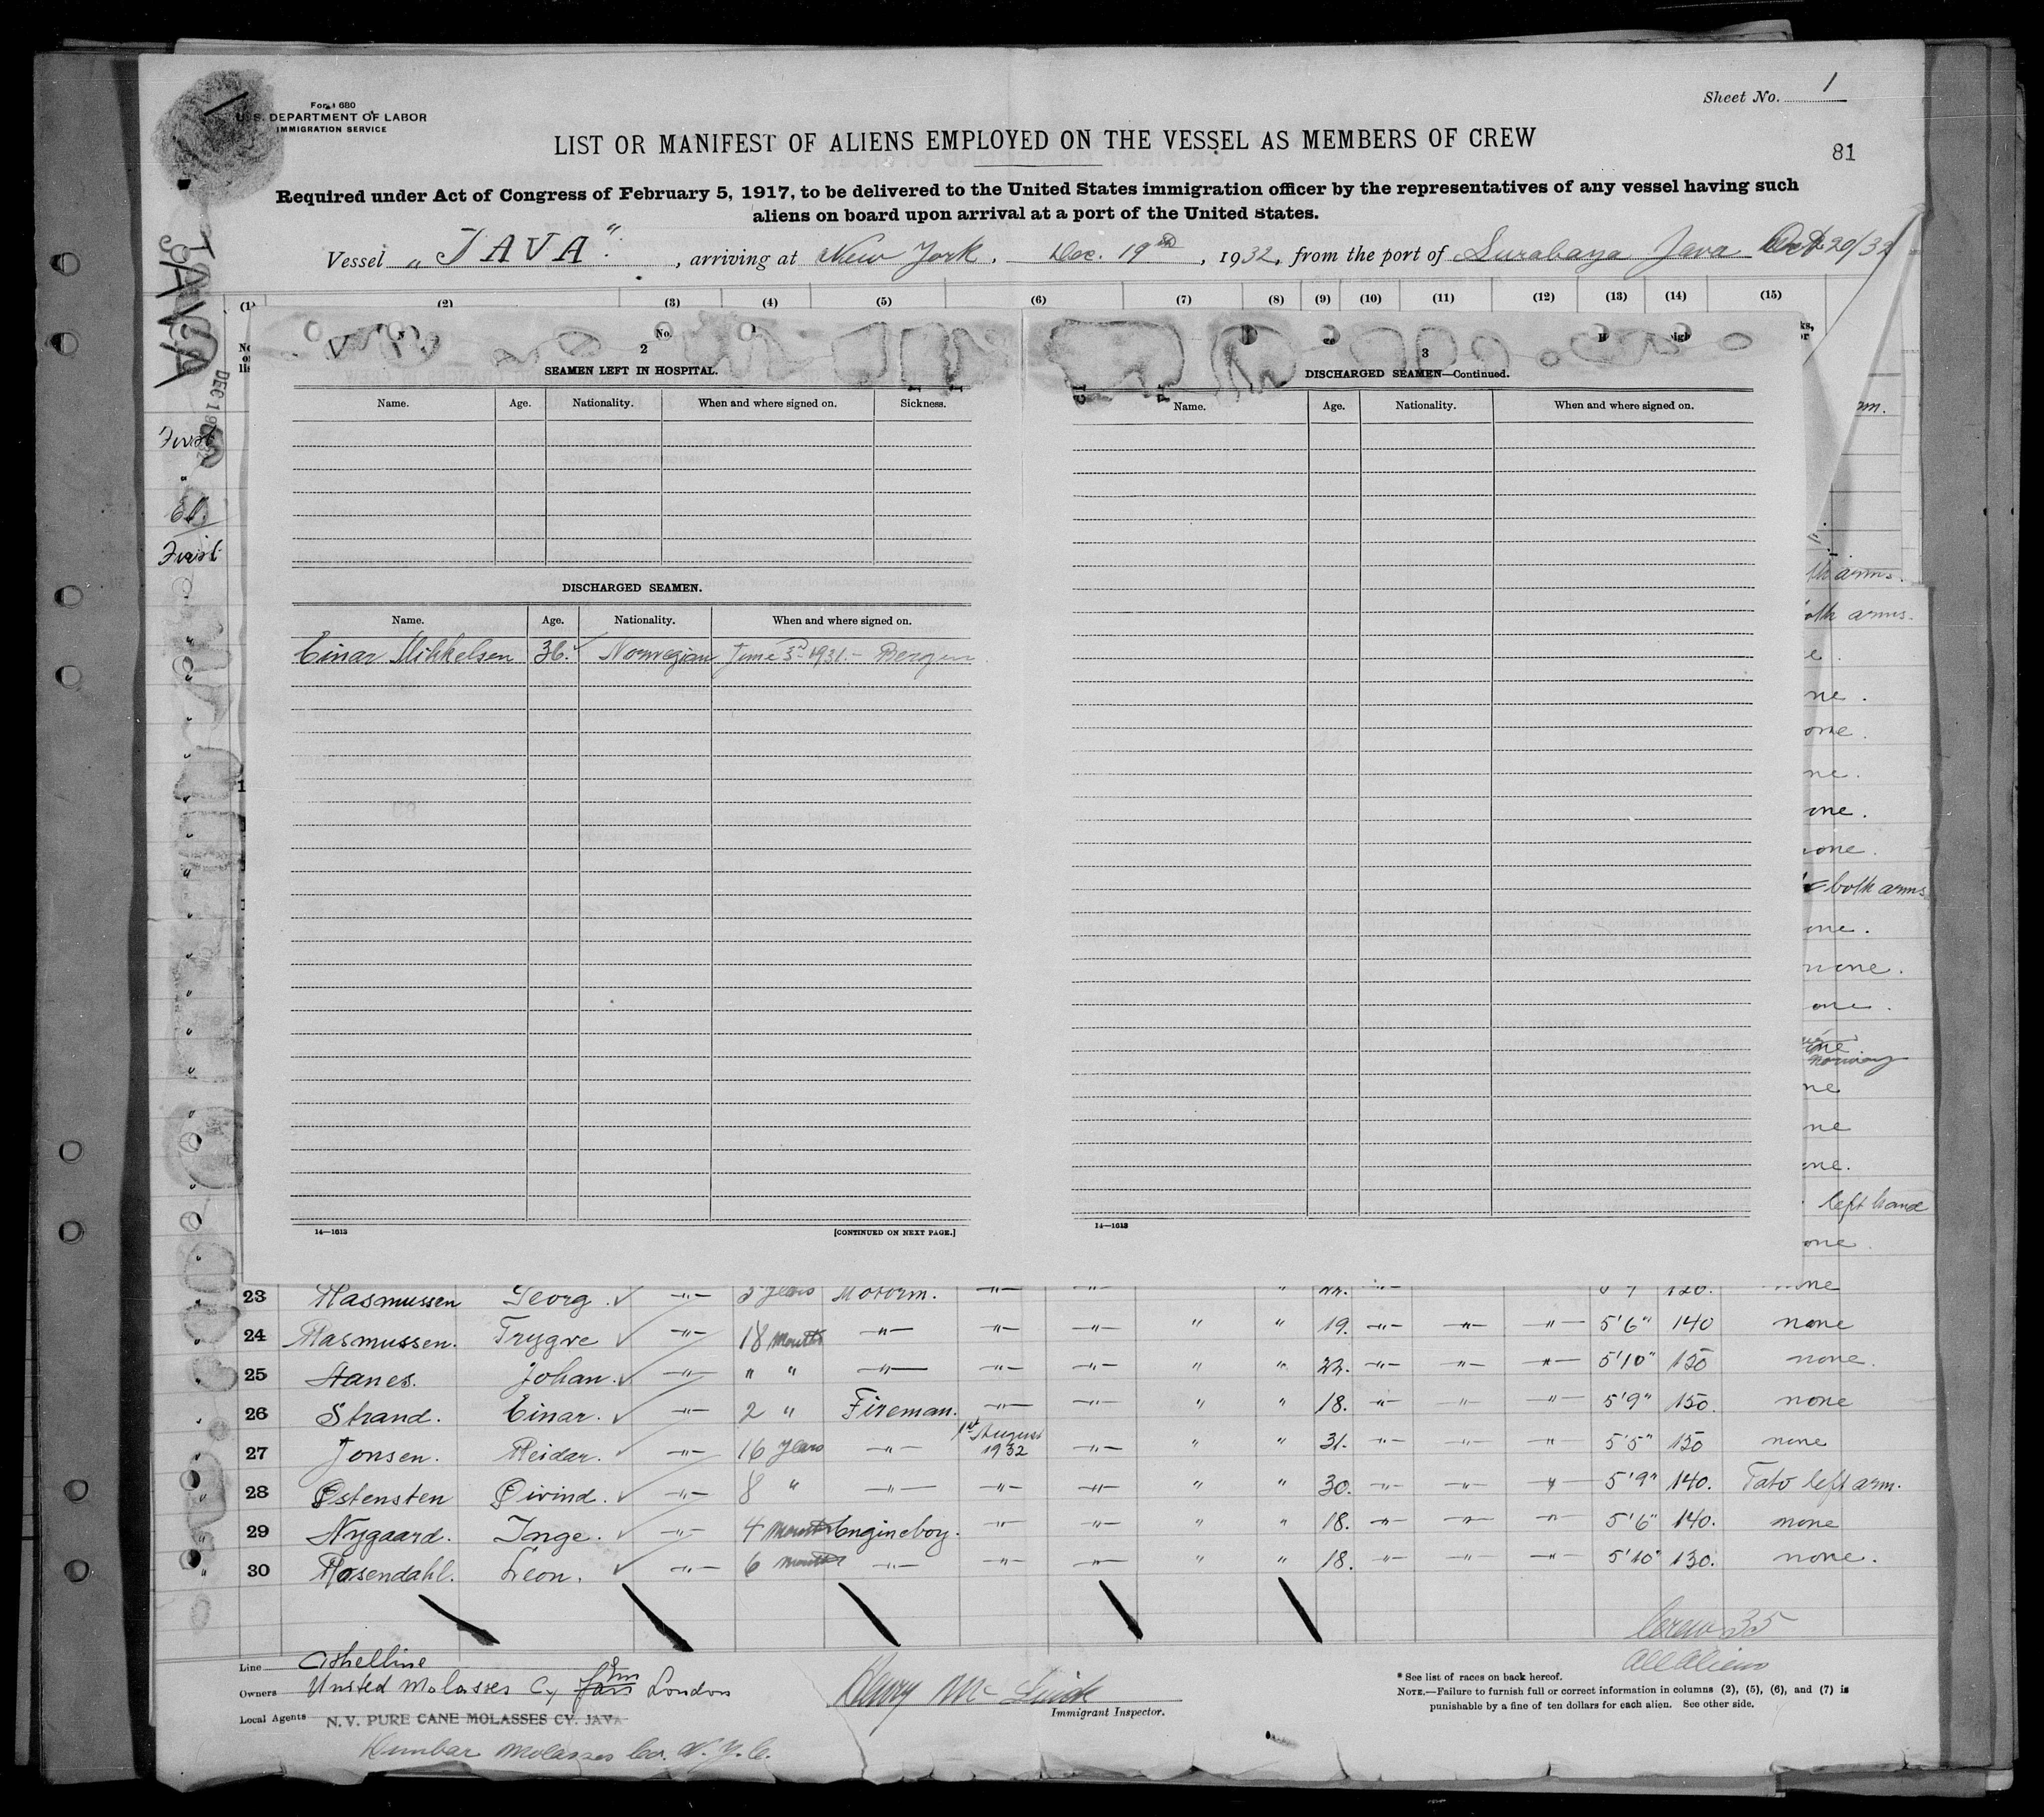 Sheet No. 1
Form 680
U. S. DEPARTMENT OF LABOR
IMMIGRATION SERVICE
LIST OR MANIFEST OF ALIENS EMPLOYED ON THE VESSEL AS MEMBERS OF CREW
81
Required under Act of Congress of February 5, 1917, to be delivered to the United States immigration officer by the representatives of any vessel having such
aliens on board upon arrival at a port of the United States.
Vessel „JAVA", arriving at New York. Dec. 19th, 1932, from the port of Surabaya Java Oct 20/32
(1) (2) (3) (4) (5) (6) (7) (8) (9) (10) (11) (12) (13) (14) (15)
JAVA
DEC 19 1932
First
"
First
2
SEAMEN LEFT IN HOSPITAL.
Name. Age. Nationality. When and where signed on. Sickness.
DISCHARGED SEAMEN.
Name. Age. Nationality. When and where signed on.
Einar Mikkelsen 36. Norwegian June 3rd 1931.- Bergen
14—1613 [CONTINUED ON NEXT PAGE.]
3
DISCHARGED SEAMEN—Continued.
Name. Age. Nationality. When and where signed on.
14—1613
both arms.
left hand
23 Rasmussen Georg. ✓ -"- 3 years Motorm. -"- -"- " 22. -"- 120. none
24 Rasmussen. Trygve ✓ -"- 18 months -"- -"- -"- " " 19. -"- -"- -"- 5'6" 140 none
25 Hanes. Johan. ✓ -"- " " -"- -"- -"- " " 22. -"- -"- -"- 5'10" 150 none.
26 Strand. Einar. ✓ -"- 2 " Fireman. -"- -"- " " 18. -"- -"- -"- 5'9" 150. none
27 Jonsen. Reidar. ✓ -"- 16 years -"- 1st August 1932 -"- " " 31. -"- -"- -"- 5'5" 150 none
28 Østensten Øivind. ✓ -"- 8 " -"- -"- -"- " " 30. -"- -"- -"- 5'9" 140. Tato left arm.
29 Nygaard. Inge. ✓ -"- 4 months Engineboy. -"- -"- " " 18. -"- -"- -"- 5'6" 140. none
30 Rosendahl. Leon. ✓ -"- 6 months -"- -"- -"- " " 18. -"- -"- -"- 5'10" 130. none.
Crew 35
All Aliens
Line Athelline
Owners United Molasses Cy Lim London
Local Agents N. V. PURE CANE MOLASSES CY. JAVA
Dunbar Molasses Co. N. Y. C.
Henry Mc
Immigrant Inspector.
* See list of races on back hereof.
NOTE.—Failure to furnish full or correct information in columns (2), (5), (6), and (7) is
punishable by a fine of ten dollars for each alien. See other side.